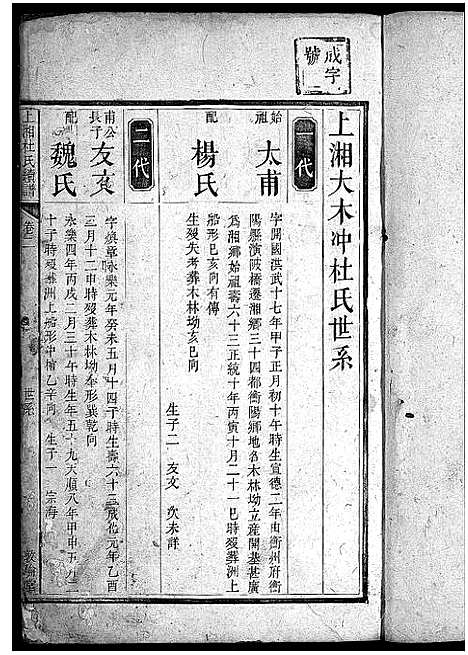 成字
號
上湘大木冲杜氏世系
一代
始祖
太甫
字開國洪武十七年甲子正月初十年時生宣德二年由衡州府衡
陽縣演陂橋遷湘鄉三十四都衡陽鄉地名木林坳立產開基甚廣
為湘鄉始祖壽六十三正統十年丙寅十月二十一巳時歿葬洲上
船形巳亥向有傳
配
楊氏
生歿失考葬木林坳亥巳向
生子二 友文 次未詳
二代
甫公長子
友文
字 章永樂元年癸未五月十四子時生壽六十三成化元年乙酉
三月十二申時歿葬木林坳傘形巽乾向
配
魏氏
永樂四年丙戌二月三十午時生年五十九天順八年甲申五月二
十子時歿葬洲上船形中棺乙辛向 生子一 宗海
上湘杜氏續譜
卷二
世系